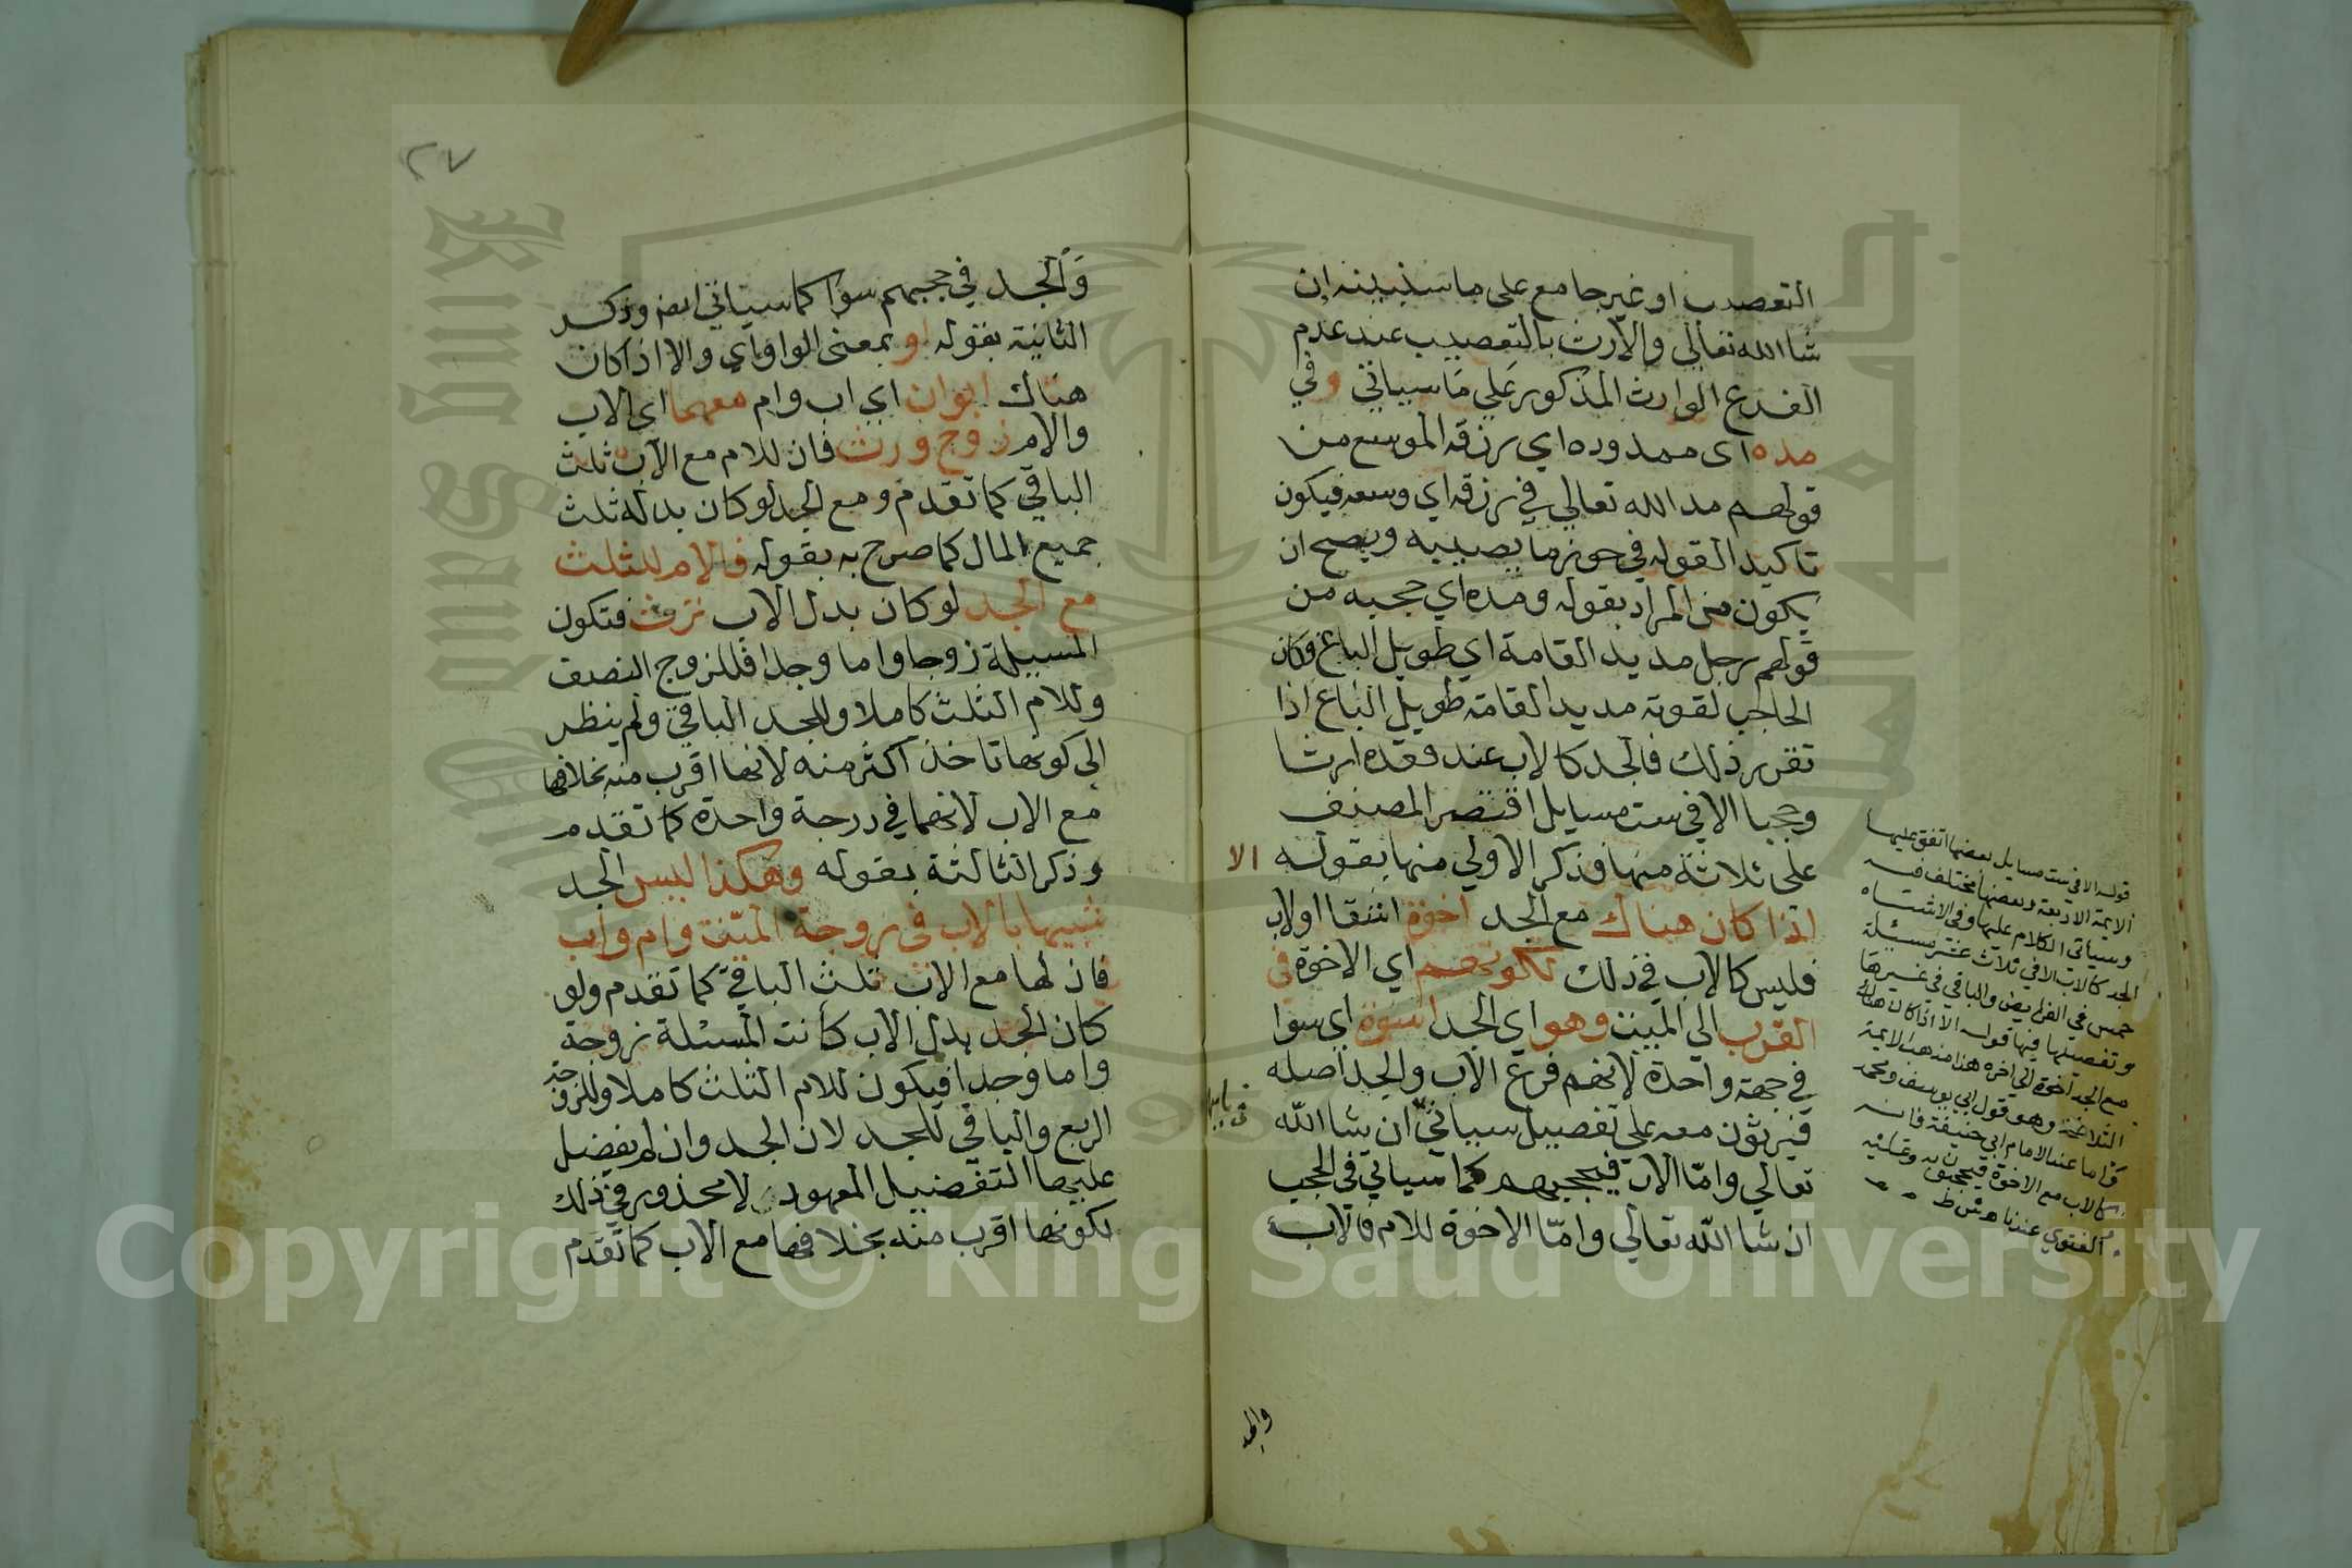 التعصيب او غير جامع على ما سنبينه ان
شا الله تعالي والارث بالتعصيب عند عدم
الفرع الوارث المذكور علي ما سياتي وفي
مده اي ممدوده اي رزقه الموسع من
قولهم مد الله تعالي في رزقه اي وسعه فيكون
تاكيدا لقوله في حوز ما يصيبه ويصح ان
يكون من المراد بقوله ومده اي حجبه من
قولهم رجل مديد القامة اي طويل الباع وكان
الحاجب لقوته مديد القامة طويل الباع اذا
تقرر ذلك فالجد كالاب عند فقده ارثا
وحجبا الا في ست مسايل اقتصر المصنف
علي ثلاثة منها فذكر الاولي منها بقوله الا
اذا كان هناك مع الجد اخوة اشقا او لاب
فليس كالاب في ذلك لكونهم اي الاخوة في
القرب الي الميت وهو اي الجد اسوة اي سوا
في جهة واحدة لانهم فرع الاب والجد اصله
فيرثون معه علي تفصيل سياتي ان شا الله
تعالي واما الاب فيحجبهم كما سياتي في الحجب
ان شا الله تعالي واما الاخوة للام فالاب
والجد
قوله الا في ست مسايل بعضها اتفق عليها
الايمة الاربعة وبعضها مختلف فيه
وسياتي الكلام عليها وفي الاشباه
الجد كالاب الا في ثلاث عشر مسئلة
خمس في الفرايض والباقي في غيرها
وتفصيلها فيها قوله الا اذا كان هناك
مع الجد اخوة الي اخره هذا مذهب الايمة
الثلاثة وهو قول ابي يوسف ومحمد
واما عند الامام ابي حنيفة فانه
كالاب مع الاخوة فيحجبون به وعليه
الفتوي عندنا
٢٧
والجد في حجبهم سوا كما سياتي ايضا وذكر
الثانية بقوله او بمعني الواو اي والا اذا كان
هناك ابوان اي اب وام معهما اي الاب
والام زوج ورث فان للام مع الاب ثلث
الباقي كما تقدم ومع الجد لو كان بدله ثلث
جميع المال كما صرح به بقوله فالام للثلث
مع الجد لو كان بدل الاب ترث فتكون
المسيلة زوجا واما وجدا فللزوج النصف
وللام الثلث كاملا وللجد الباقي ولم ينظر
الي كونها تاخذ اكثر منه لانها اقرب منه بخلافها
مع الاب لانهما في درجة واحدة كما تقدم
وذكر الثالثة بقوله وهكذا ليس الجد
شبيها بالاب في زوجة الميت وام واب
فان لها مع الاب ثلث الباقي كما تقدم ولو
كان الجد بدل الاب كانت المسئلة زوجة
واما وجدا فيكون للام الثلث كاملا وللزوجة
الربع والباقي للجد لان الجد وان لم يفضل
عليها التفضيل المعهود لا محذور في ذلك
لكونها اقرب منه بخلافها مع الاب كما تقدم
Copyright © King Saud University